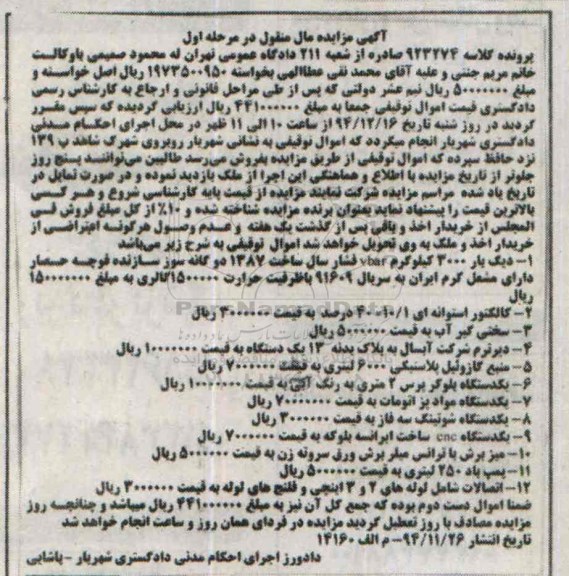 آگهی مزایده مال منقول در مرحله اول
پرونده کلاسه ۹۲۳۲۷۴ صادره از شعبه ۲۱۱ دادگاه عمومی تهران له محمود صمیمی باوکالت
خانم مریم جنتی و علیه آقای محمد تقی عطاالهی بخواسته ۱۹۷۳۵۰۰۹۵۰ ریال اصل خواسته و
مبلغ ۵۰۰۰۰۰۰۰ ریال نیم عشر دولتی که پس از طی مراحل قانونی و ارجاع به کارشناس رسمی
دادگستری قیمت اموال توقیفی جمعا به مبلغ ۴۴۱۰۰۰۰۰۰ ریال ارزیابی گردیده که سپس مقرر
گردید در روز شنبه تاریخ ۹۴/۱۲/۱۶ از ساعت ۱۰ الی ۱۱ ظهر در محل اجرای احکام مدنی
دادگستری شهریار انجام میگردد که اموال توقیفی به نشانی شهریار روبروی شهرک شاهد پ ۱۳۹
نزد حافظ سپرده که اموال توقیفی از طریق مزایده بفروش می‌رسد طالبین می‌توانند پنج روز
جلوتر از تاریخ مزایده با اطلاع و هماهنگی این اجرا از ملک بازدید نموده و در صورت تمایل در
تاریخ یاد شده مراسم مزایده شرکت نمایند مزایده از قیمت پایه کارشناسی شروع و هر کسی
بالاترین قیمت را پیشنهاد نماید بعنوان برنده مزایده شناخته شده و ۱۰٪ از کل مبلغ فروش فی
المجلس از خریدار اخذ و باقی پس از گذشت یک هفته و عدم وصول هرگونه اعتراضی از
خریدار اخذ و ملک به وی تحویل خواهد شد اموال توقیفی به شرح زیر می‌باشد
۱- دیگ بار ۳۰۰۰ کیلوگرم ۷bar فشار سال ساخت ۱۳۸۷ دو گانه سوز سازنده قوچه حصار
دارای مشعل گرم ایران به سریال ۹۱۶۰۹ باظرفیت حرارت ۱۵۰۰۰۰۰کالری به مبلغ ۱۵۰۰۰۰۰۰۰
ریال
۲- کالکتور استوانه ای ۴۰۰-۱۰/۱ درصد به قیمت ۴۰۰۰۰۰۰ ریال
۳- سختی گیر آب به قیمت ۵۰۰۰۰۰۰ ریال
۴- دیرترم شرکت آبسال به پلاک بدنه ۱۳ یک دستگاه به قیمت ۱۰۰۰۰۰۰۰ ریال
۵- منبع گازوئیل پلاستیکی ۶۰۰۰ لیتری به قیمت ۷۰۰۰۰۰۰ ریال
۶- یکدستگاه بلوکر پرس ۲ متری به رنگ آبی به قیمت ۱۰۰۷۰۰۰۰۰ ریال
۷- یکدستگاه مواد پز اتومات به قیمت ۷۰۰۰۰۰۰۰ ریال
۸- یکدستگاه شوتینگ سه فاز به قیمت ۳۰۰۰۰۰۰ ریال
۹- یکدستگاه cnc ساخت ایران‌سه بلوکه به قیمت ۷۰۰۰۰۰۰۰ ریال
۱۰- میز برش با ترانس میلر برش ورق سروته زن به قیمت ۵۰۰۰۰۰۰ ریال
۱۱- پمپ باد ۲۵۰ لیتری به قیمت ۵۰۰۰۰۰۰ ریال
۱۲- اتصالات شامل لوله های ۲ و ۳ اینچی و فلنج های لوله به قیمت ۳۰۰۰۰۰۰ ریال
ضمنا اموال دست دوم بوده که جمع کل آن نیز به مبلغ ۴۴۱۰۰۰۰۰۰ ریال میباشد و چنانچه روز
مزایده مصادف با روز تعطیل گردید مزایده در فردای همان روز و ساعت انجام خواهد شد
تاریخ انتشار ۹۴/۱۱/۲۶- م الف ۱۴۱۶۰
دادورز اجرای احکام مدنی دادگستری شهریار - پاشایی